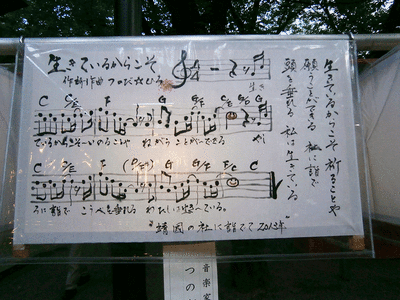 生きているからこそ
作詞作曲 つのだ☆ひろ
生き
C C/E F G G/F C/E G
ているからこそーいのることや ねがうことがーできる やし
C C/E F G G/F C/E F C
ろに詣で こうべを垂れる わたしは生きーている。
"靖國の社に詣でて2013年"
生きているからこそ 祈ることや
願うことができる 社に詣で
頭を垂れる 私は生きている
音楽家
つの